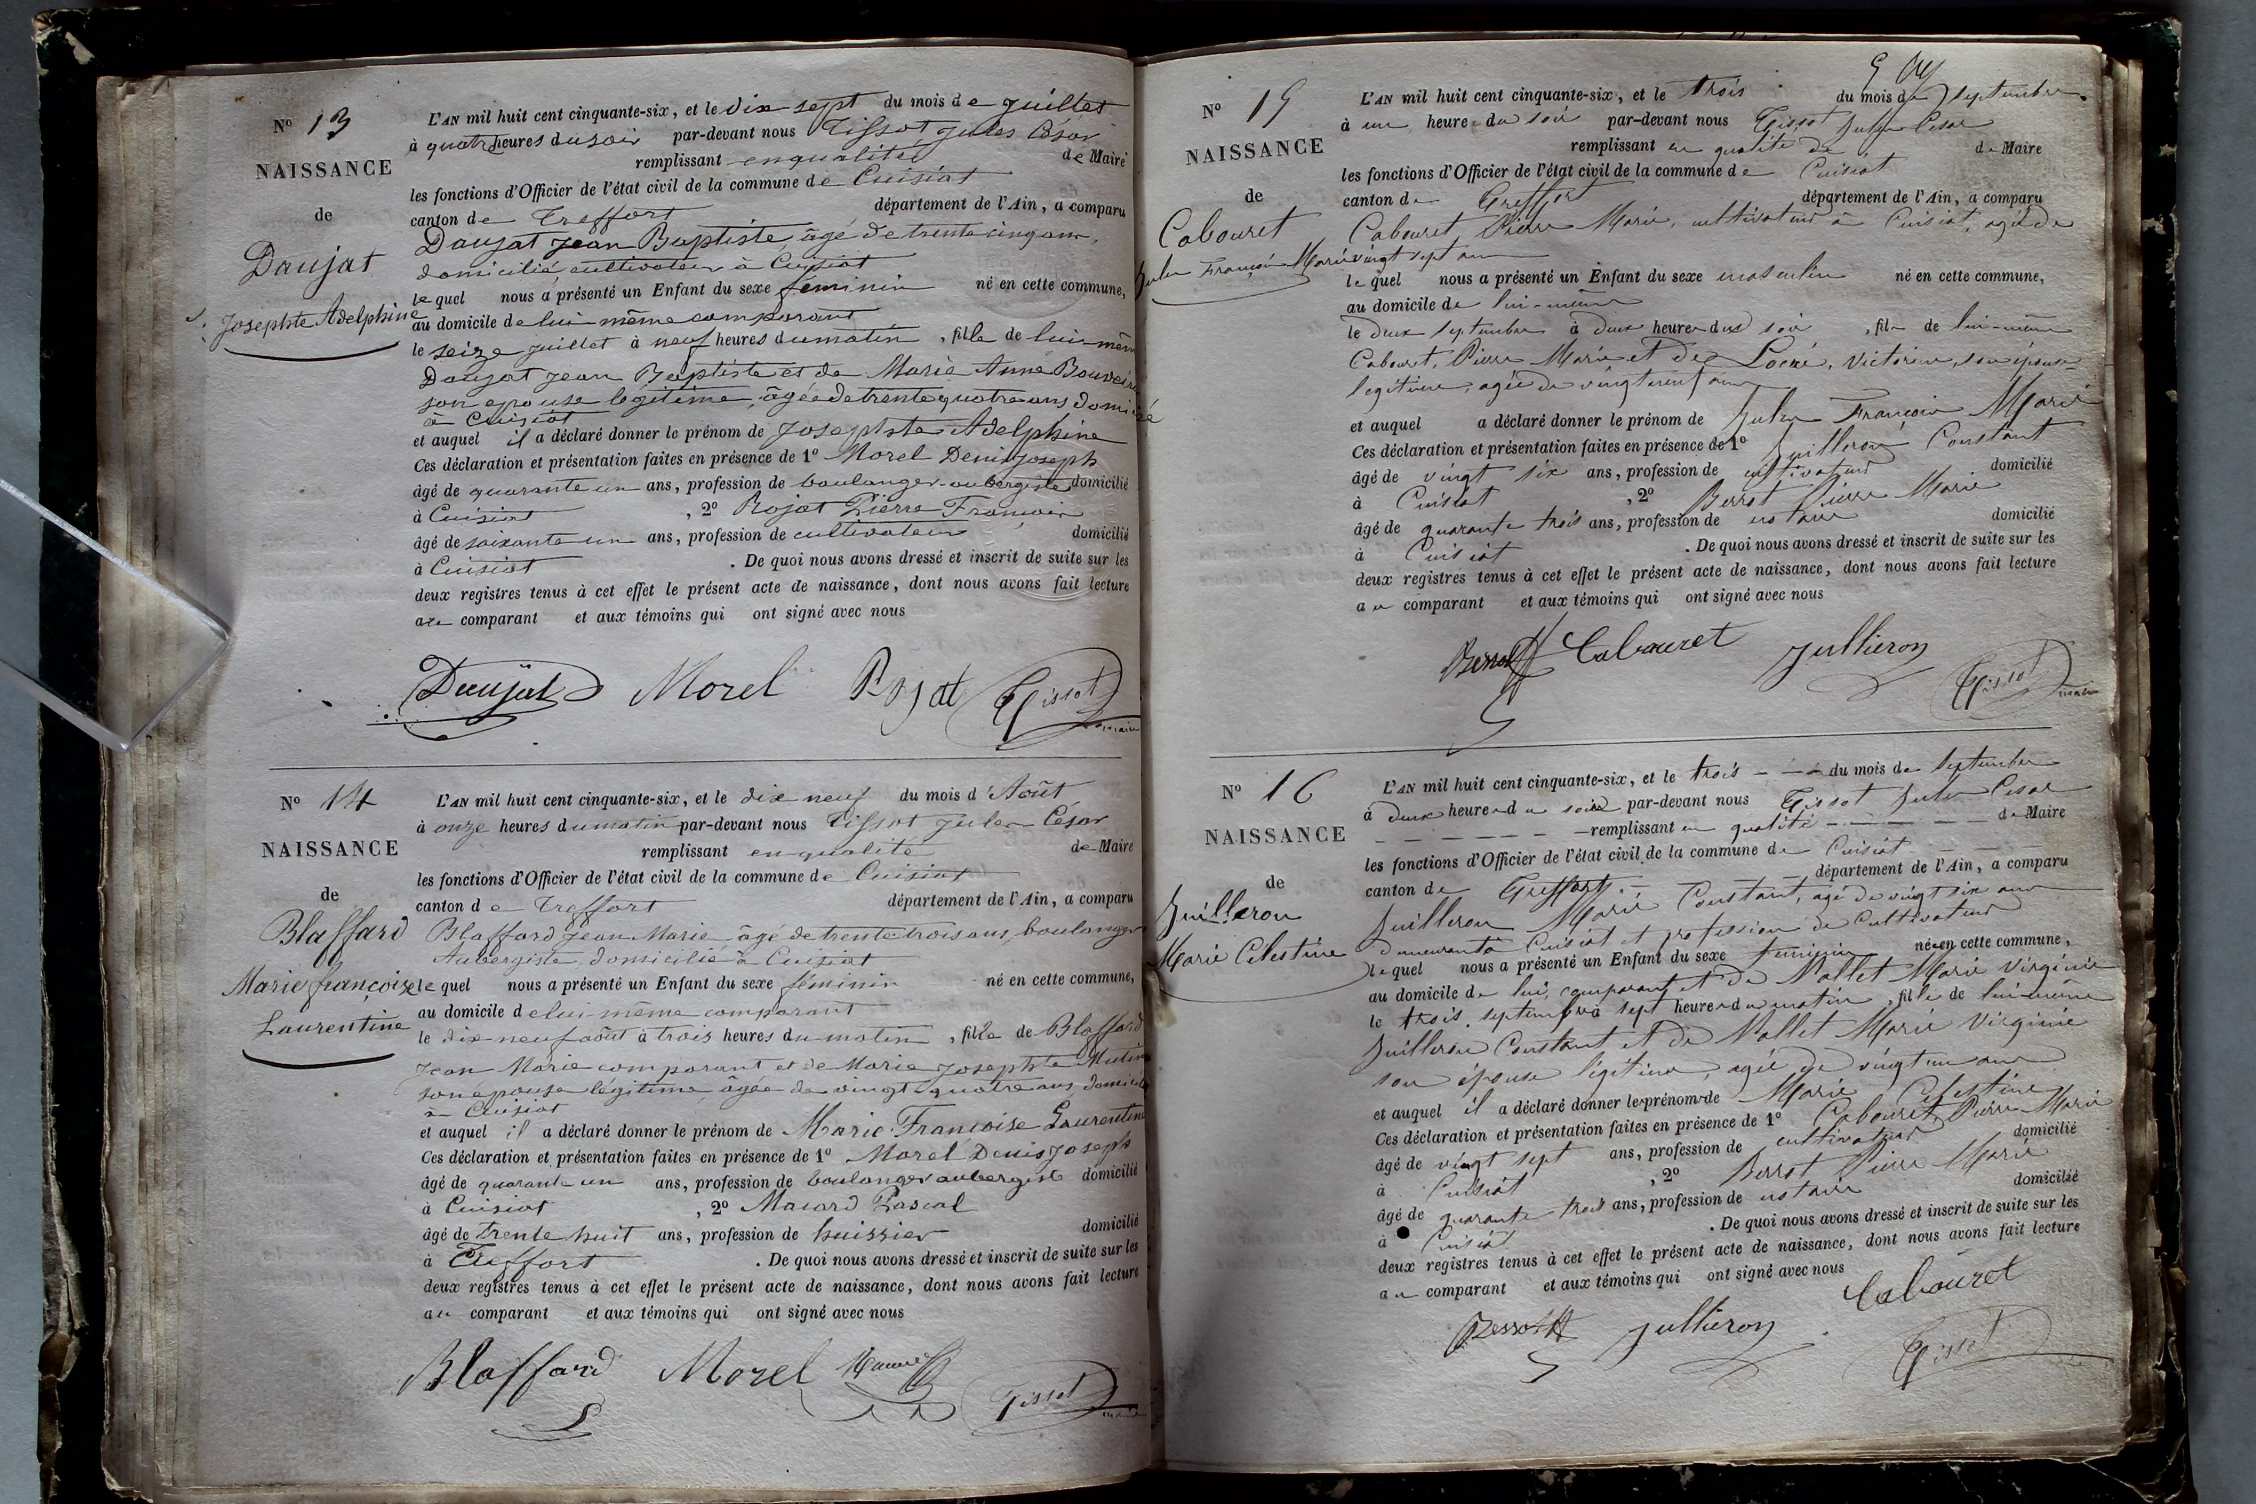 N° 13
NAISSANCE
de
Daujat
Josephte Adelphine
L'AN mil huit cent cinquante-six, et le dix sept du mois de juillet
à quatre heures du soir par-devant nous Tissot Jules César
remplissant en qualité de Maire
les fonctions d'Officier de l'état civil de la commune de Cuisiat
canton de Treffort département de l'Ain, a comparu
Daujat Jean Baptiste, âgé de trente cinq ans,
domicilié, cultivateur à Cuisiat
lequel nous a présenté un Enfant du sexe féminin né en cette commune,
au domicile de lui même comparant
le seize juillet à neuf heures du matin, fille de lui même
Daujat Jean Baptiste et de Marie Anne
son épouse légitime, âgée de trente quatre ans, domicilié
à Cuisiat
et auquel il a déclaré donner le prénom de Josephte Adelphine
Ces déclaration et présentation faites en présence de 1° Morel Denis Joseph
âgé de quarante un ans, profession de boulanger-aubergiste domicilié
à Cuisiat, 2° Rojat Pierre François
âgé de soixante un ans, profession de cultivateur domicilié
à Cuisiat. De quoi nous avons dressé et inscrit de suite sur les
deux registres tenus à cet effet le présent acte de naissance, dont nous avons fait lecture
au comparant et aux témoins qui ont signé avec nous
Daujat Morel Rojat Tissot
maire
N° 14
NAISSANCE
de
Blaffard
Marie françoise
Laurentine
L'AN mil huit cent cinquante-six, et le dix neuf du mois d'Août
à onze heures du matin par-devant nous Tissot Jules César
remplissant en qualité de Maire
les fonctions d'Officier de l'état civil de la commune de Cuisiat
canton de Treffort département de l'Ain, a comparu
Blaffard Jean Marie âgé de trente trois ans, boulanger
Aubergiste, domicilié à Cuisiat
lequel nous a présenté un Enfant du sexe féminin né en cette commune,
au domicile de lui même comparant
le dix neuf août à trois heures du matin, fille de Blaffard
Jean Marie comparant et de Marie Josephte
son épouse légitime, âgée de vingt quatre ans, domicilié
à Cuisiat
et auquel il a déclaré donner le prénom de Marie Françoise Laurentine
Ces déclaration et présentation faites en présence de 1° Morel Denis Joseph
âgé de quarante un ans, profession de boulanger aubergiste domicilié
à Cuisiat, 2° Macard Pascal
âgé de trente huit ans, profession de huissier domicilié
à Treffort. De quoi nous avons dressé et inscrit de suite sur les
deux registres tenus à cet effet le présent acte de naissance, dont nous avons fait lecture
au comparant et aux témoins qui ont signé avec nous
Blaffard Morel Tissot
N° 15
NAISSANCE
de
Cabouret
Jules François Marie
L'AN mil huit cent cinquante-six, et le trois du mois de septembre
à une heure du soir par-devant nous Tissot Jules Cesar
remplissant en qualité de Maire
les fonctions d'Officier de l'état civil de la commune de Cuisiat
canton de Treffort département de l'Ain, a comparu
Cabouret, Pierre Marie, cultivateur à Cuisiat, agé de
vingt sept ans
lequel nous a présenté un Enfant du sexe masculin né en cette commune,
au domicile de lui-même
le deux septembre à deux heures du soir, fils de lui-même
Cabouret, Pierre Marie et de Victorine, son épouse
légitime, agée de vingt neuf ans
et auquel a déclaré donner le prénom de Jules François Marie
Ces déclaration et présentation faites en présence de 1° Juilleron Constant
âgé de vingt six ans, profession de cultivateur domicilié
à Cuisiat, 2° Berrot Pierre Marie
âgé de quarante trois ans, profession de notaire domicilié
à Cuisiat. De quoi nous avons dressé et inscrit de suite sur les
deux registres tenus à cet effet le présent acte de naissance, dont nous avons fait lecture
au comparant et aux témoins qui ont signé avec nous
Berrot Cabouret Jullieron Tissot
maire
N° 16
NAISSANCE
de
Juilleron
Marie Celestine
L'AN mil huit cent cinquante-six, et le trois du mois de Septembre
à deux heures du soir par-devant nous Tissot Jules Cesar
remplissant en qualité de Maire
les fonctions d'Officier de l'état civil de la commune de Cuisiat
canton de Treffort département de l'Ain, a comparu
Juilleron Marie Constant, agé de vingt six ans
demeurant à Cuisiat et profession de Cultivateur
lequel nous a présenté un Enfant du sexe feminin née en cette commune,
au domicile de lui, comparant et de Mallet Marie Virginie
le trois septembre à sept heures du matin, fille de lui-même
Juilleron Constant et de Mallet Marie Virginie
son épouse légitime, agée de vingt un ans
et auquel il a déclaré donner les prénoms de Marie Celestine
Ces déclaration et présentation faites en présence de 1° Cabouret Pierre Marie
âgé de vingt sept ans, profession de cultivateur domicilié
à Cuisiat, 2° Berrot Pierre Marie
âgé de quarante trois ans, profession de notaire domicilié
à Cuisiat. De quoi nous avons dressé et inscrit de suite sur les
deux registres tenus à cet effet le présent acte de naissance, dont nous avons fait lecture
au comparant et aux témoins qui ont signé avec nous
Berrot Jullieron Cabouret
Tissot